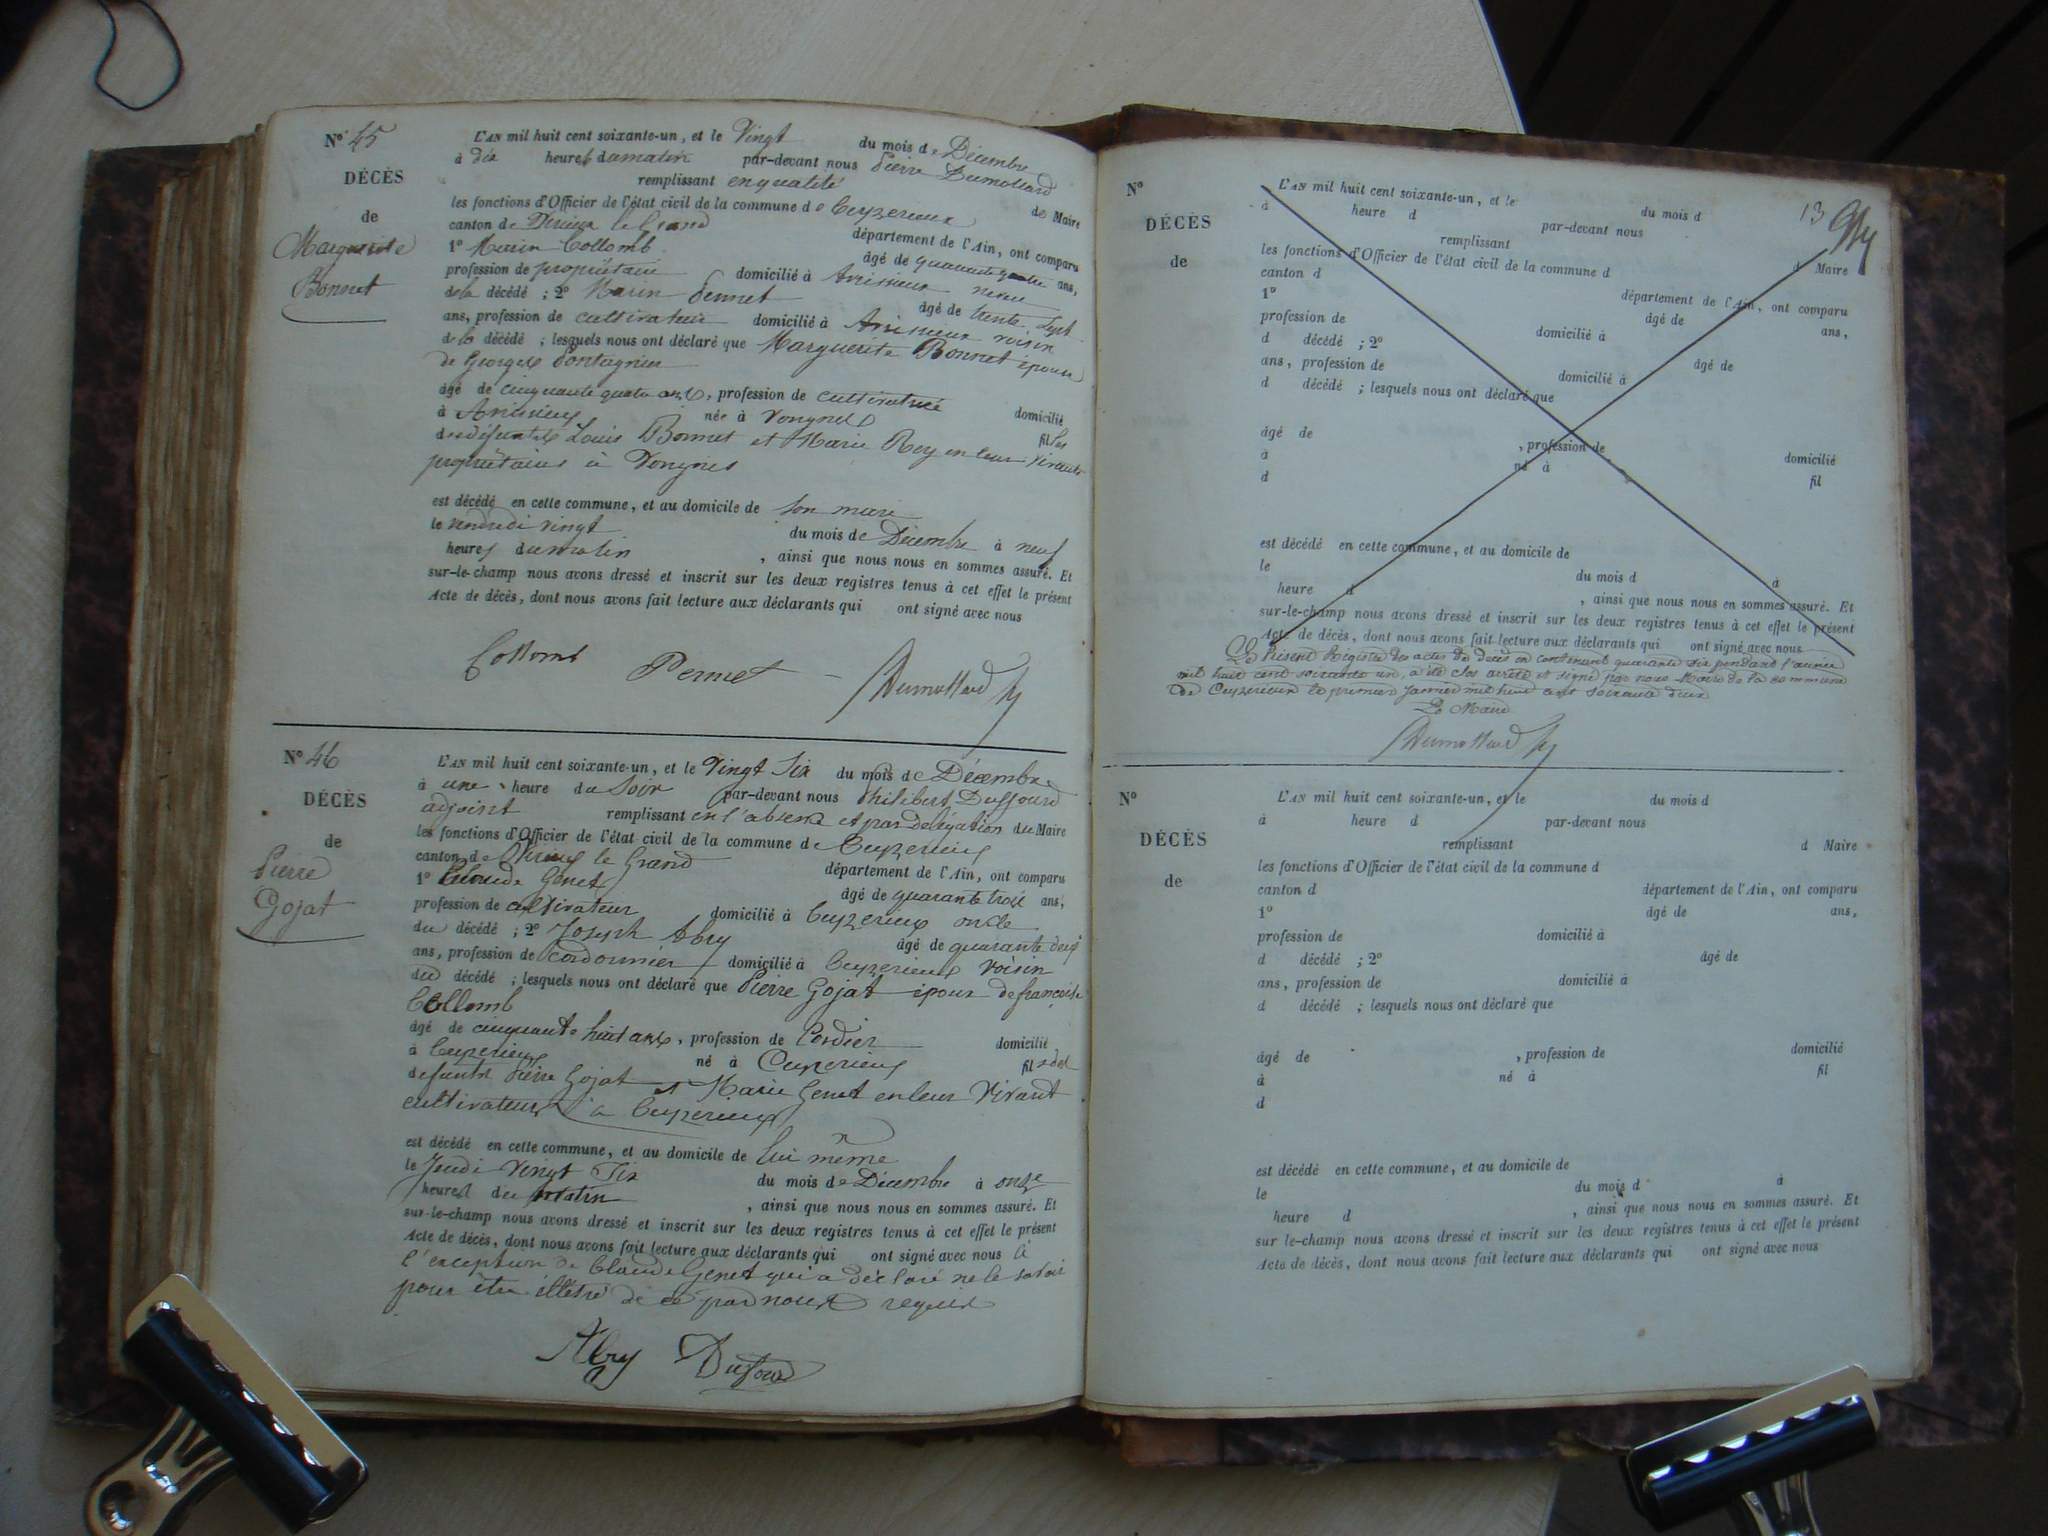 N° 45
DÉCÈS
de
Marguerite
Bonnet
L'AN mil huit cent soixante-un, et le Vingt du mois de Décembre
à dix heures du matin par-devant nous Pierre Dumollard
remplissant en qualité de Maire
les fonctions d'Officier de l'état civil de la commune de Ceyzerieux
canton de Virieu le Grand département de l'Ain, ont comparu
1° Marin Collomb âgé de quarante quatre ans,
profession de propriétaire domicilié à Avrissieux neveu
de la décédé ; 2° Marin Pernet âgé de trente sept
ans, profession de cultivateur domicilié à Avrissieux voisin
de la décédé ; lesquels nous ont déclaré que Marguerite Bonnet épouse
de Georges Pontagnier
âgé de cinquante quatre ans, profession de cultivatrice domicilié
à Avrissieux née à Vongnes fille
des défunts Louis Bonnet et Marie Rey en leur vivant
propriétaires à Vongnes
est décédé en cette commune, et au domicile de son mari
le vendredi vingt du mois de Décembre à neuf
heures du matin , ainsi que nous nous en sommes assuré. Et
sur-le-champ nous avons dressé et inscrit sur les deux registres tenus à cet effet le présent
Acte de décès, dont nous avons fait lecture aux déclarants qui ont signé avec nous
Collomb Pernet Dumollard
N° 46
DÉCÈS
de
Pierre
Gojat
L'AN mil huit cent soixante-un, et le Vingt Six du mois de Décembre
à une heure du Soir par-devant nous Philibert Dufour
adjoint remplissant en l'absence et par délégation du Maire
les fonctions d'Officier de l'état civil de la commune de Ceyzerieux
canton de Virieu le Grand département de l'Ain, ont comparu
1° Claude Genet âgé de quarante trois ans,
profession de cultivateur domicilié à Ceyzerieux oncle
du décédé ; 2° Joseph Abry âgé de quarante deux
ans, profession de Cordonnier domicilié à Ceyzerieux voisin
du décédé ; lesquels nous ont déclaré que Pierre Gojat époux de françoise
Collomb
âgé de cinquante huit ans, profession de Cordier domicilié
à Ceyzerieux né à Ceyzerieux fils de
defunts Pierre Gojat et Marie Genet en leur Vivant
cultivateurs à Ceyzerieux
est décédé en cette commune, et au domicile de lui même
le Jeudi vingt Six du mois de Décembre à onze
heures du matin , ainsi que nous nous en sommes assuré. Et
sur-le-champ nous avons dressé et inscrit sur les deux registres tenus à cet effet le présent
Acte de décès, dont nous avons fait lecture aux déclarants qui ont signé avec nous à
l'exception de Claude Genet qui a déclaré ne le savoir
pour être illétré de ce par nous requis
Abry Dufour
13
N°
DÉCÈS
de
L'AN mil huit cent soixante-un, et le du mois d
à heure d par-devant nous
remplissant d Maire
les fonctions d'Officier de l'état civil de la commune d
canton d département de l'Ain, ont comparu
1° âgé de ans,
profession de domicilié à
d décédé ; 2° âgé de
ans, profession de domicilié à
d décédé ; lesquels nous ont déclaré que
âgé de , profession de domicilié
à né à fil
d
est décédé en cette commune, et au domicile de
le du mois d à
heure d , ainsi que nous nous en sommes assuré. Et
sur-le-champ nous avons dressé et inscrit sur les deux registres tenus à cet effet le présent
Acte de décès, dont nous avons fait lecture aux déclarants qui ont signé avec nous
Le Présent Régistre des actes de décès en contenant quarante six pendant l'année
mil huit cent soixante un, a été clos arrêté et signé par nous Maire de la commune
de Ceyzerieux le premier Janvier mil huit cent soixante deux
Le Maire
Dumollard
N°
DÉCÈS
de
L'AN mil huit cent soixante-un, et le du mois d
à heure d par-devant nous
remplissant d Maire
les fonctions d'Officier de l'état civil de la commune d
canton d département de l'Ain, ont comparu
1° âgé de ans,
profession de domicilié à
d décédé ; 2° âgé de
ans, profession de domicilié à
d décédé ; lesquels nous ont déclaré que
âgé de , profession de domicilié
à né à fil
d
est décédé en cette commune, et au domicile de
le du mois d à
heure d , ainsi que nous nous en sommes assuré. Et
sur le-champ nous avons dressé et inscrit sur les deux registres tenus à cet effet le présent
Acte de décès, dont nous avons fait lecture aux déclarants qui ont signé avec nous